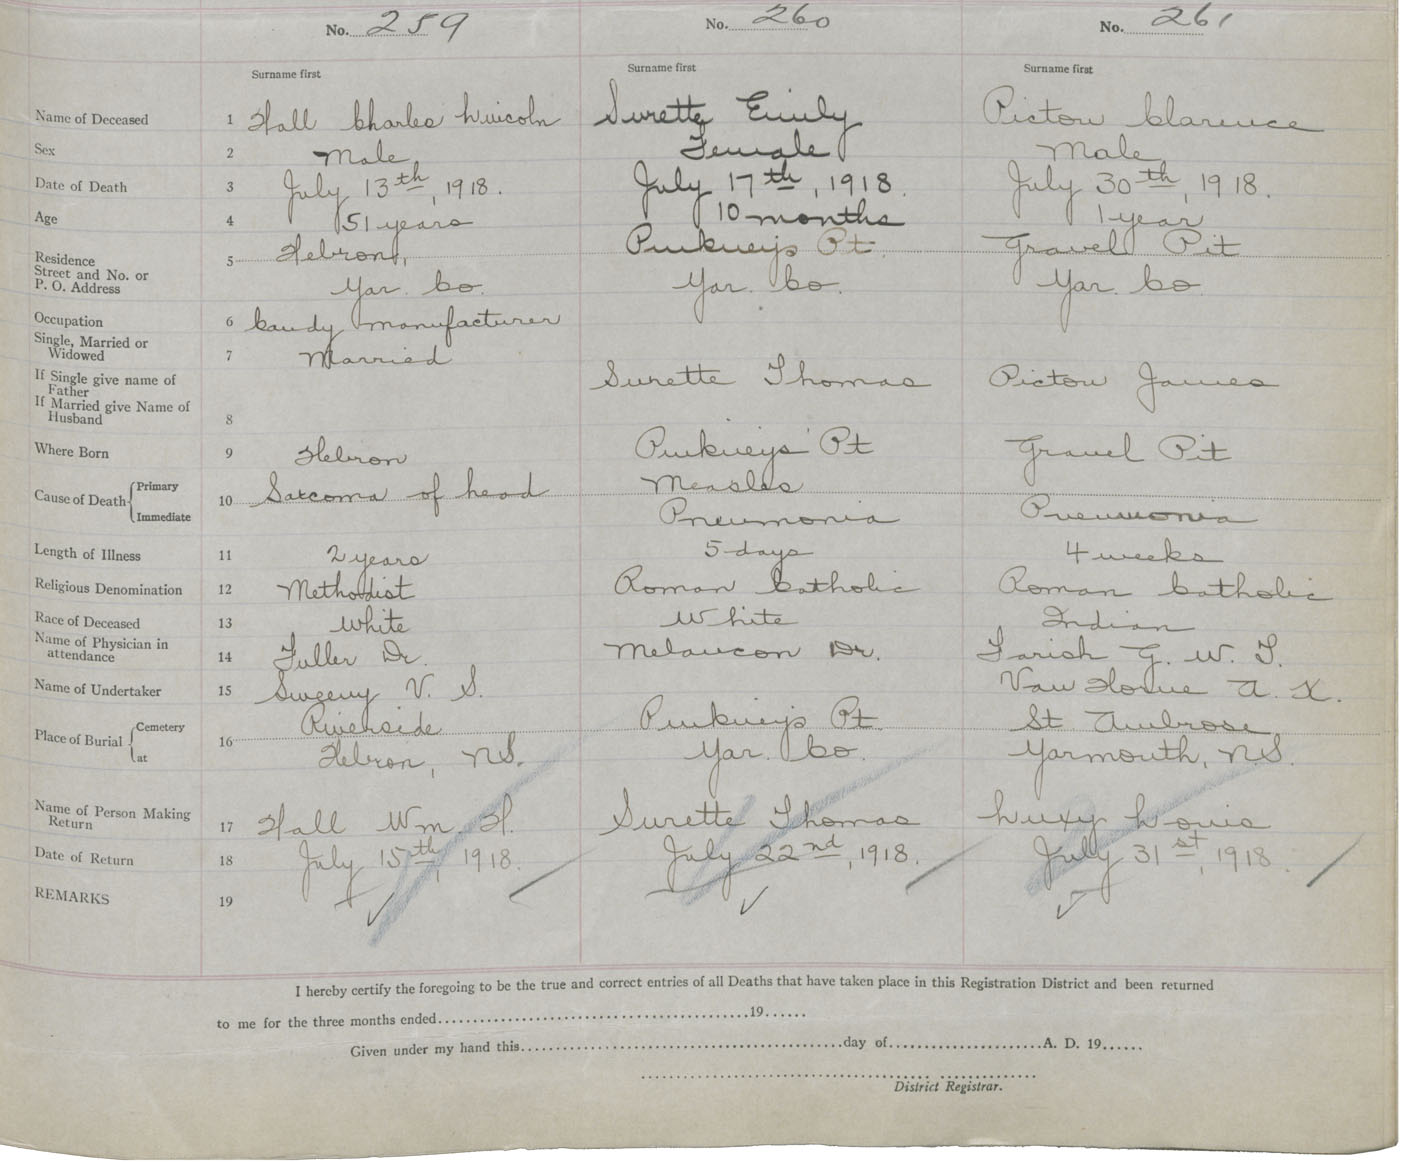 No. 259 No. 260 No. 261
Surname first Surname first Surname first
Name of Deceased 1 Hall Charles Lincoln Surette Emily Pictou Clarence
Sex 2 Male Female Male
Date of Death 3 July 13th, 1918. July 17th, 1918. July 30th, 1918.
Age 4 51 years 10 months 1 year
Residence 5 Hebron, Pinkney's Pt. Gravel Pit
Street and No. or
P. O. Address Yar. Co. Yar. Co. Yar. Co
Occupation 6 Candy manufacturer
Single, Married or
Widowed 7 Married
If Single give name of
Father Surette Thomas Pictou James
If Married give Name of
Husband 8
Where Born 9 Hebron Pinkney's Pt Gravel Pit
Cause of Death Primary 10 Sarcoma of head Measles
Immediate Pneumonia Pneumonia
Length of Illness 11 2 years 5 days 4 weeks
Religious Denomination 12 Methodist Roman Catholic Roman Catholic
Race of Deceased 13 White White Indian
Name of Physician in
attendance 14 Fuller Dr. Melancon Dr. Farish G. W. T.
Name of Undertaker 15 Sweeny V. S. Van Horne A. K.
Place of Burial Cemetery 16 Riverside Pinkney's Pt St Ambrose
at Hebron, NS. Yar. Co. Yarmouth, NS.
Name of Person Making
Return 17 Hall Wm. H. Surette Thomas Luxy Louis
Date of Return 18 July 15th, 1918. July 22nd, 1918. July 31st, 1918
REMARKS 19
I hereby certify the foregoing to be the true and correct entries of all Deaths that have taken place in this Registration District and been returned
to me for the three months ended..........19......
Given under my hand this..........day of..........A. D. 19......
District Registrar.